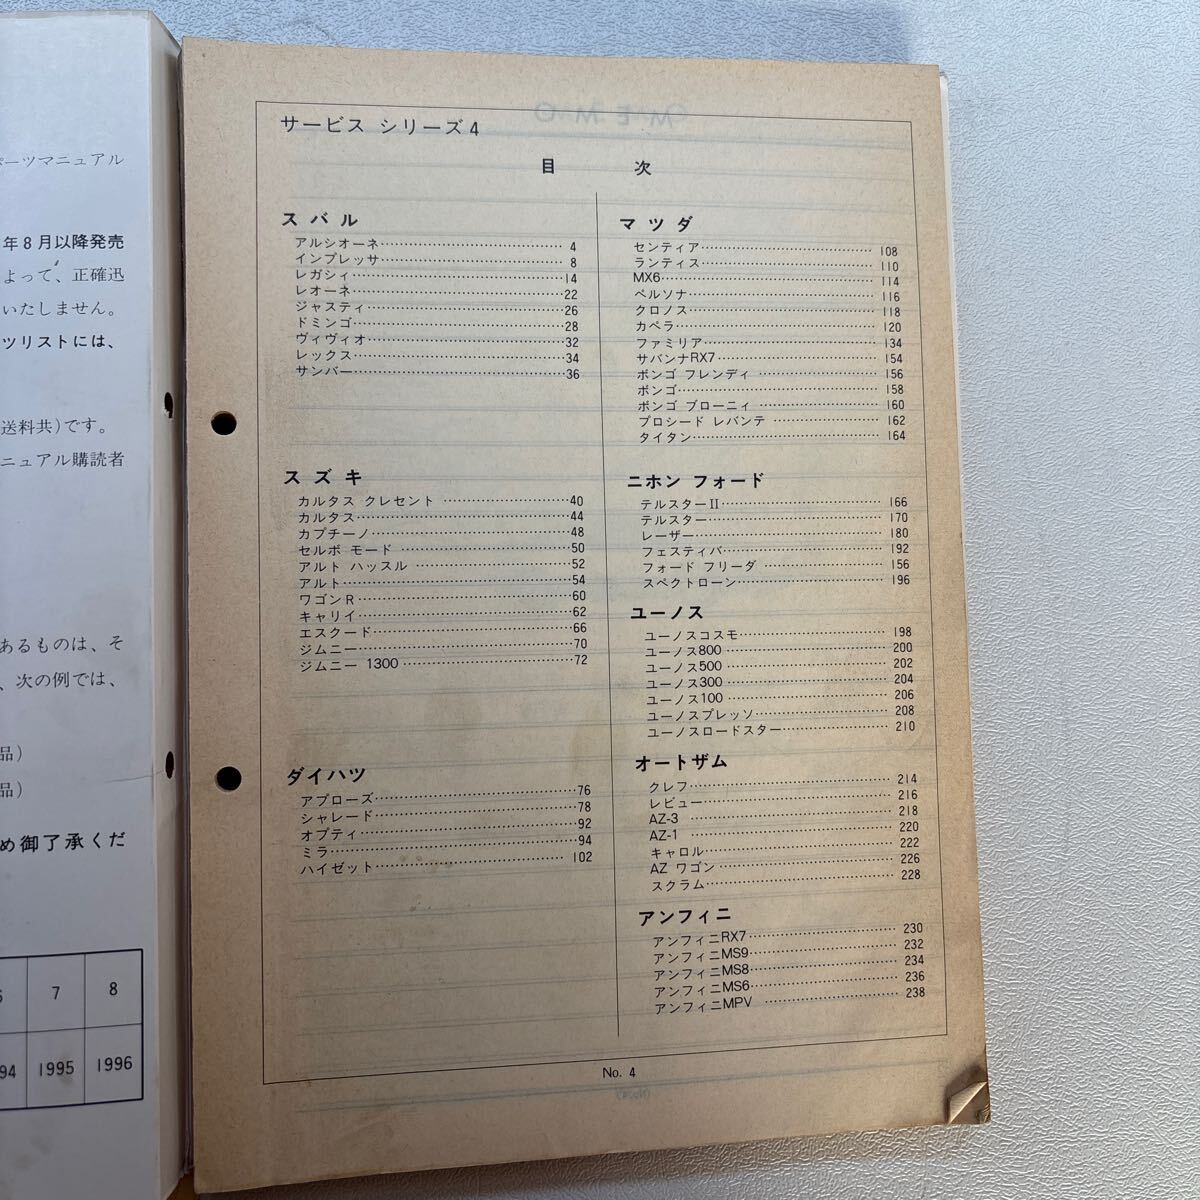 パーツマニュアル
年8月以降発売
よって、正確迅
いたしません。
ツリストには、
送料共)です。
ニュアル購読者
あるものは、そ
、次の例では、
品)
品)
め御了承くだ
7 8
94 1995 1996
サービス シリーズ4
目 次
スバル
アルシオーネ 4
インプレッサ 8
レガシィ 14
レオーネ 22
ジャスティ 26
ドミンゴ 28
ヴィヴィオ 32
レックス 34
サンバー 36
スズキ
カルタス クレセント 40
カルタス 44
カプチーノ 48
セルボ モード 50
アルト ハッスル 52
アルト 54
ワゴンR 60
キャリイ 62
エスクード 66
ジムニー 70
ジムニー 1300 72
ダイハツ
アプローズ 76
シャレード 78
オプティ 92
ミラ 94
ハイゼット 102
マツダ
センティア 108
ランティス 110
MX6 114
ペルソナ 116
クロノス 118
カペラ 120
ファミリア 134
サバンナRX7 154
ボンゴ フレンディ 156
ボンゴ 158
ボンゴ ブローニィ 160
プロシード レバンテ 162
タイタン 164
ニホン フォード
テルスターII 166
テルスター 170
レーザー 180
フェスティバ 192
フォード フリーダ 156
スペクトローン 196
ユーノス
ユーノスコスモ 198
ユーノス800 200
ユーノス500 202
ユーノス300 204
ユーノス100 206
ユーノスプレッソ 208
ユーノスロードスター 210
オートザム
クレフ 214
レビュー 216
AZ-3 218
AZ-1 220
キャロル 222
AZ ワゴン 226
スクラム 228
アンフィニ
アンフィニRX7 230
アンフィニMS9 232
アンフィニMS8 234
アンフィニMS6 236
アンフィニMPV 238
No. 4